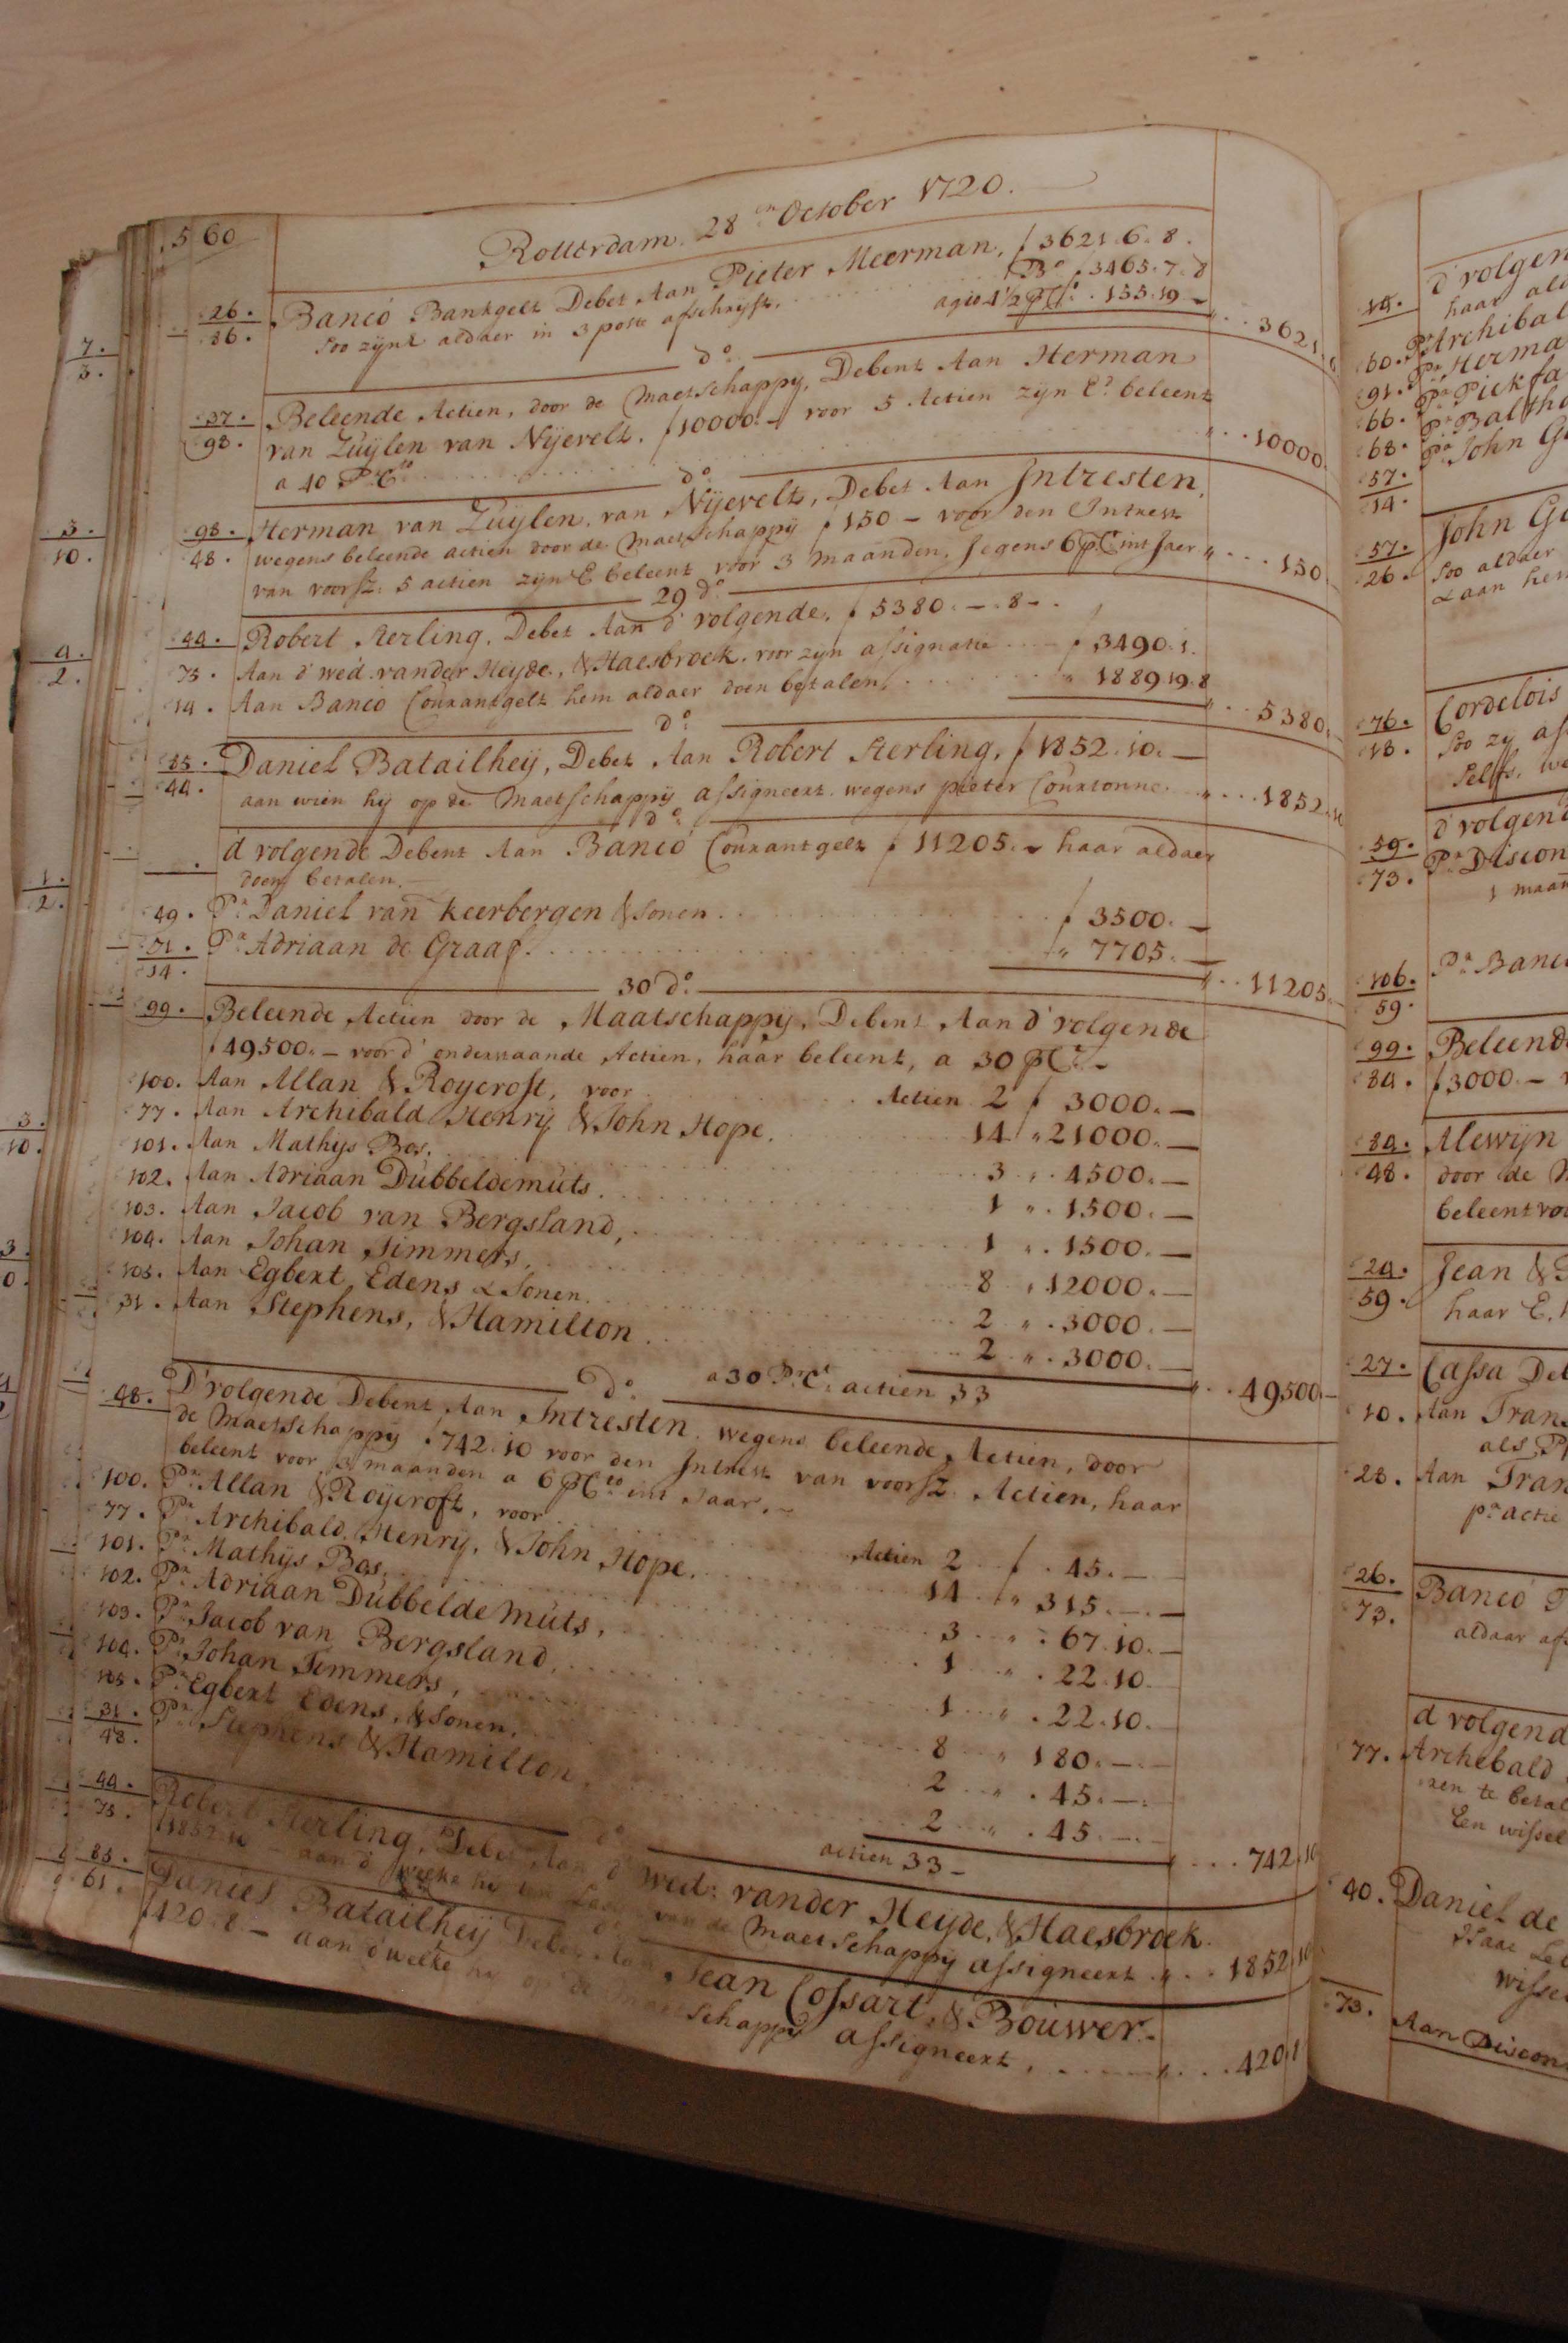 560
Rotterdam. 28en October 1720.
26. Banco Bankgelt Debet Aan Pieter Meerman, f 3621.6.8.
86. Soo zijnE aldaer in 3 poste afschrijft. Bo f 3465.7.8
agio 4 1/2 pCt. 155.19 — 3621
do
37. Beleende Actien, door de Maetschappij, Debent Aan Herman
98. van Zuijlen van Nijevelt. f 10000.- voor 5 Actien zijn E? beleent
a 40 PrCto 10000
do
98. Herman van Zuijlen, van Nijevelt, Debet Aan Intresten,
48. wegens beleende actien door de Maetschappij f 150 - voor den Intrest
van voorsz: 5 actien zijn E beleent voor 3 maanden, jegens 6 pCt int Jaer 150
29 do
44. Robert Sterling, Debet Aan d'volgende, f 5380.-.8-.
73. Aan d'wed. vander Heyde, & Haesbroek. voor zijn assignatie f 3490.1.
14. Aan Banco Courantgelt hem aldaer doen betalen, 1889.19.8
5380
do
85. Daniel Batailheij, Debet Aan Robert Sterling, f 1852.10.—
44. aan wien hij op de Maetschappij assigneert. wegens pieter Courtonne. 1852.10
do
d'volgende Debent Aan Banco Courantgelt f 11205.- haar aldaer
doen betalen.
49. Pr Daniel van Keerbergen & Sonen f 3500.—
51. Pr Adriaan de Graaf. 7705.—
14. 11205
30 do
99. Beleende Actien door de Maatschappij, Debent Aan d'volgende
f 49500.- voor d'onderstaande Actien, haar beleent, a 30 pCt.-
100. Aan Allan & Roycroft, voor Actien 2 f 3000.—
77. Aan Archibald Henrij & John Hope. 14 " 21000.—
101. Aan Mathijs Bos. 3 " 4500.—
102. Aan Adriaan Dubbeldemuts. 1 " 1500.—
103. Aan Jacob van Bergsland, 1 " 1500.—
104. Aan Johan Simmers. 8 " 12000.—
105. Aan Egbert Edens & Sonen. 2 " 3000.—
31. Aan Stephens, & Hamilton 2 " 3000.—
a 30 PrCt actien 33 49500-
do
48. D'volgende Debent Aan Intresten. wegens beleende Actien, door
de Maetschappij f 742.10 voor den Intrest van voorsz. Actien, haar
beleent voor 3 maanden a 6 pCto int Jaar.-
100. Pr Allan & Roijcroft, voor Actien 2 f 45.—
77. Pr Archibald, Henrij, & John Hope. 14 " 315.—.—
101. Pr Mathijs Bos. 3 " 67.10.—
102. Pr Adriaan Dubbelde muts, 1 " 22.10.
103. Pr Jacob van Bergsland, 1 " 22.10.
104. Pr Johan Simmers, 8 " 180.—.—
105. Pr Egbert Edens, & Sonen. 2 " 45.—.
31. Pr Stephens & Hamilton. 2 " 45.—.
48. actien 33- 742.10
do
44. Robert Sterling, Debet Aan d'Wed: vander Heyde, & Haesbroek.
73. f 1852.10 - aan d'welke hij van de Maetschappij assigneert 1852.10
do
85. Daniel Batailheij Debet Aan Jean Cossart, & Bouwer.
61. f 420.8.- aan d'welke hij op de Maetschappij assigneert, 420
7.
3.
3.
10.
4.
2.
1.
2.
3.
10.
14. d'volgen
haar ald
60. Pr Archibal
91. Pr Herma
66. Pr Pickfa
68. Pr Baltha
57. Pr John G
14.
57. John Ge
26. Soo aldaer
& aan hem
76. Cordelois
18. Soo zij
Selfs, we
59. d'volgend
73. Pr Discon
1 maan
106. Pr Banc
59.
99. Beleende
84. f 3000.-
84. Alewijn
48. door de M
beleent vo
24. Jean &
59. haar E.
27. Cassa Deb
10. Aan Trans
als P
23. Aan Tran
pr actie
26. Banco
73. aldaar af
d volgend
77. Archebald
ren te betal
Een wissel
40. Daniel de
Wissel
73. Aan Discon